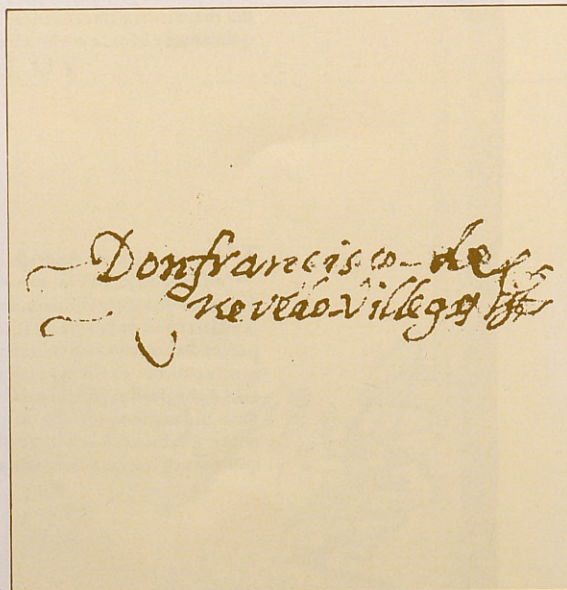 Don francisco de
quevedo villegas